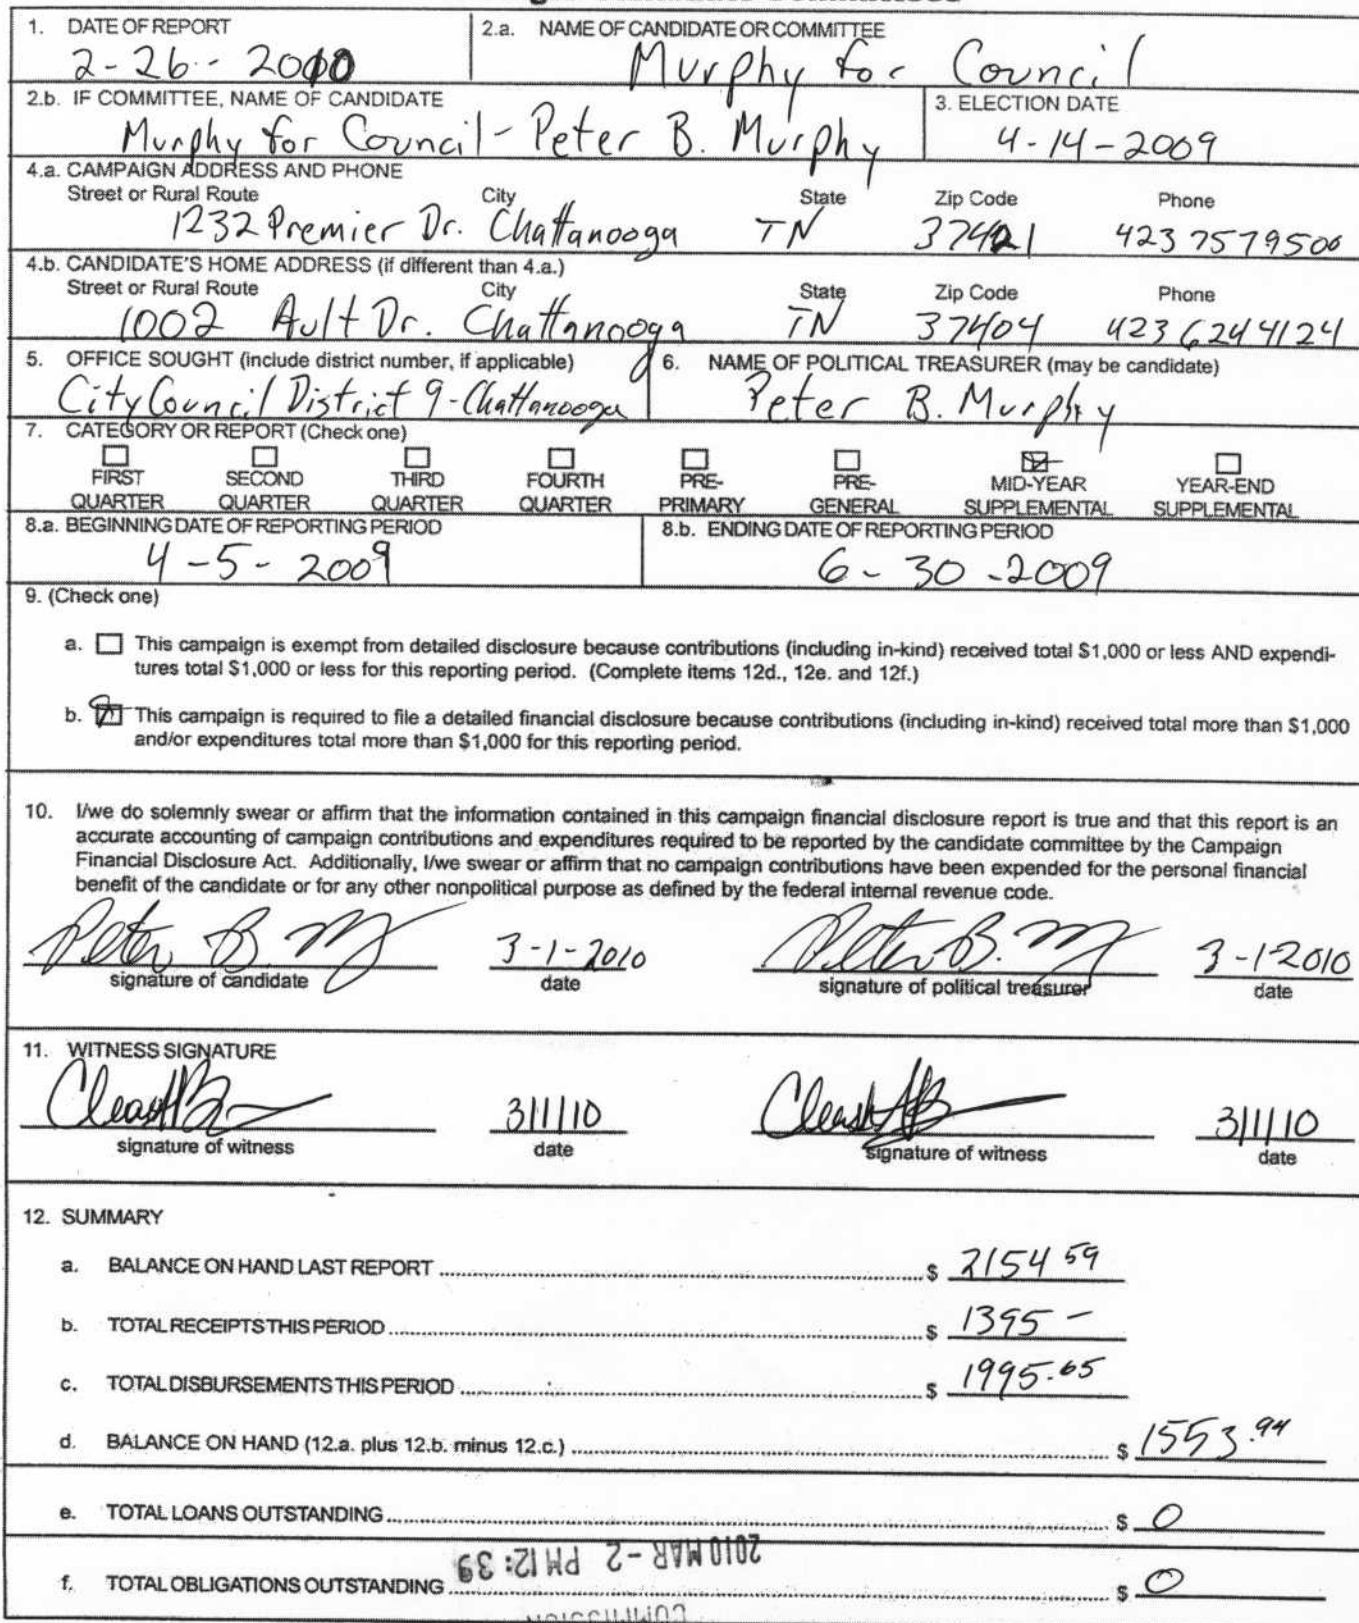 1. DATE OF REPORT
2-26-2010
2.a. NAME OF CANDIDATE OR COMMITTEE
Murphy for Council
2.b. IF COMMITTEE, NAME OF CANDIDATE
Murphy for Council - Peter B. Murphy
3. ELECTION DATE
4-14-2009
4.a. CAMPAIGN ADDRESS AND PHONE
Street or Rural Route City State Zip Code Phone
1232 Premier Dr. Chattanooga TN 37421 423 7579506
4.b. CANDIDATE'S HOME ADDRESS (if different than 4.a.)
Street or Rural Route City State Zip Code Phone
1002 Ault Dr. Chattanooga TN 37404 423 624 4124
5. OFFICE SOUGHT (include district number, if applicable)
City Council District 9 - Chattanooga
6. NAME OF POLITICAL TREASURER (may be candidate)
Peter B. Murphy
7. CATEGORY OR REPORT (Check one)
FIRST QUARTER
SECOND QUARTER
THIRD QUARTER
FOURTH QUARTER
PRE-PRIMARY
PRE-GENERAL
MID-YEAR SUPPLEMENTAL
YEAR-END SUPPLEMENTAL
8.a. BEGINNING DATE OF REPORTING PERIOD
4-5-2009
8.b. ENDING DATE OF REPORTING PERIOD
6-30-2009
9. (Check one)
a. This campaign is exempt from detailed disclosure because contributions (including in-kind) received total $1,000 or less AND expendi-
tures total $1,000 or less for this reporting period. (Complete items 12d., 12e. and 12f.)
b. This campaign is required to file a detailed financial disclosure because contributions (including in-kind) received total more than $1,000
and/or expenditures total more than $1,000 for this reporting period.
10. I/we do solemnly swear or affirm that the information contained in this campaign financial disclosure report is true and that this report is an
accurate accounting of campaign contributions and expenditures required to be reported by the candidate committee by the Campaign
Financial Disclosure Act. Additionally, I/we swear or affirm that no campaign contributions have been expended for the personal financial
benefit of the candidate or for any other nonpolitical purpose as defined by the federal internal revenue code.
Peter B. 3-1-2010 Peter B. 3-1-2010
signature of candidate date signature of political treasurer date
11. WITNESS SIGNATURE
3/1/10 3/1/10
signature of witness date signature of witness date
12. SUMMARY
a. BALANCE ON HAND LAST REPORT $ 2154 59
b. TOTAL RECEIPTS THIS PERIOD $ 1395 -
c. TOTAL DISBURSEMENTS THIS PERIOD $ 1995.65
d. BALANCE ON HAND (12.a. plus 12.b. minus 12.c.) $ 1553.94
e. TOTAL LOANS OUTSTANDING $ 0
2010 MAR -2 PM 12:39
f. TOTAL OBLIGATIONS OUTSTANDING $ 0